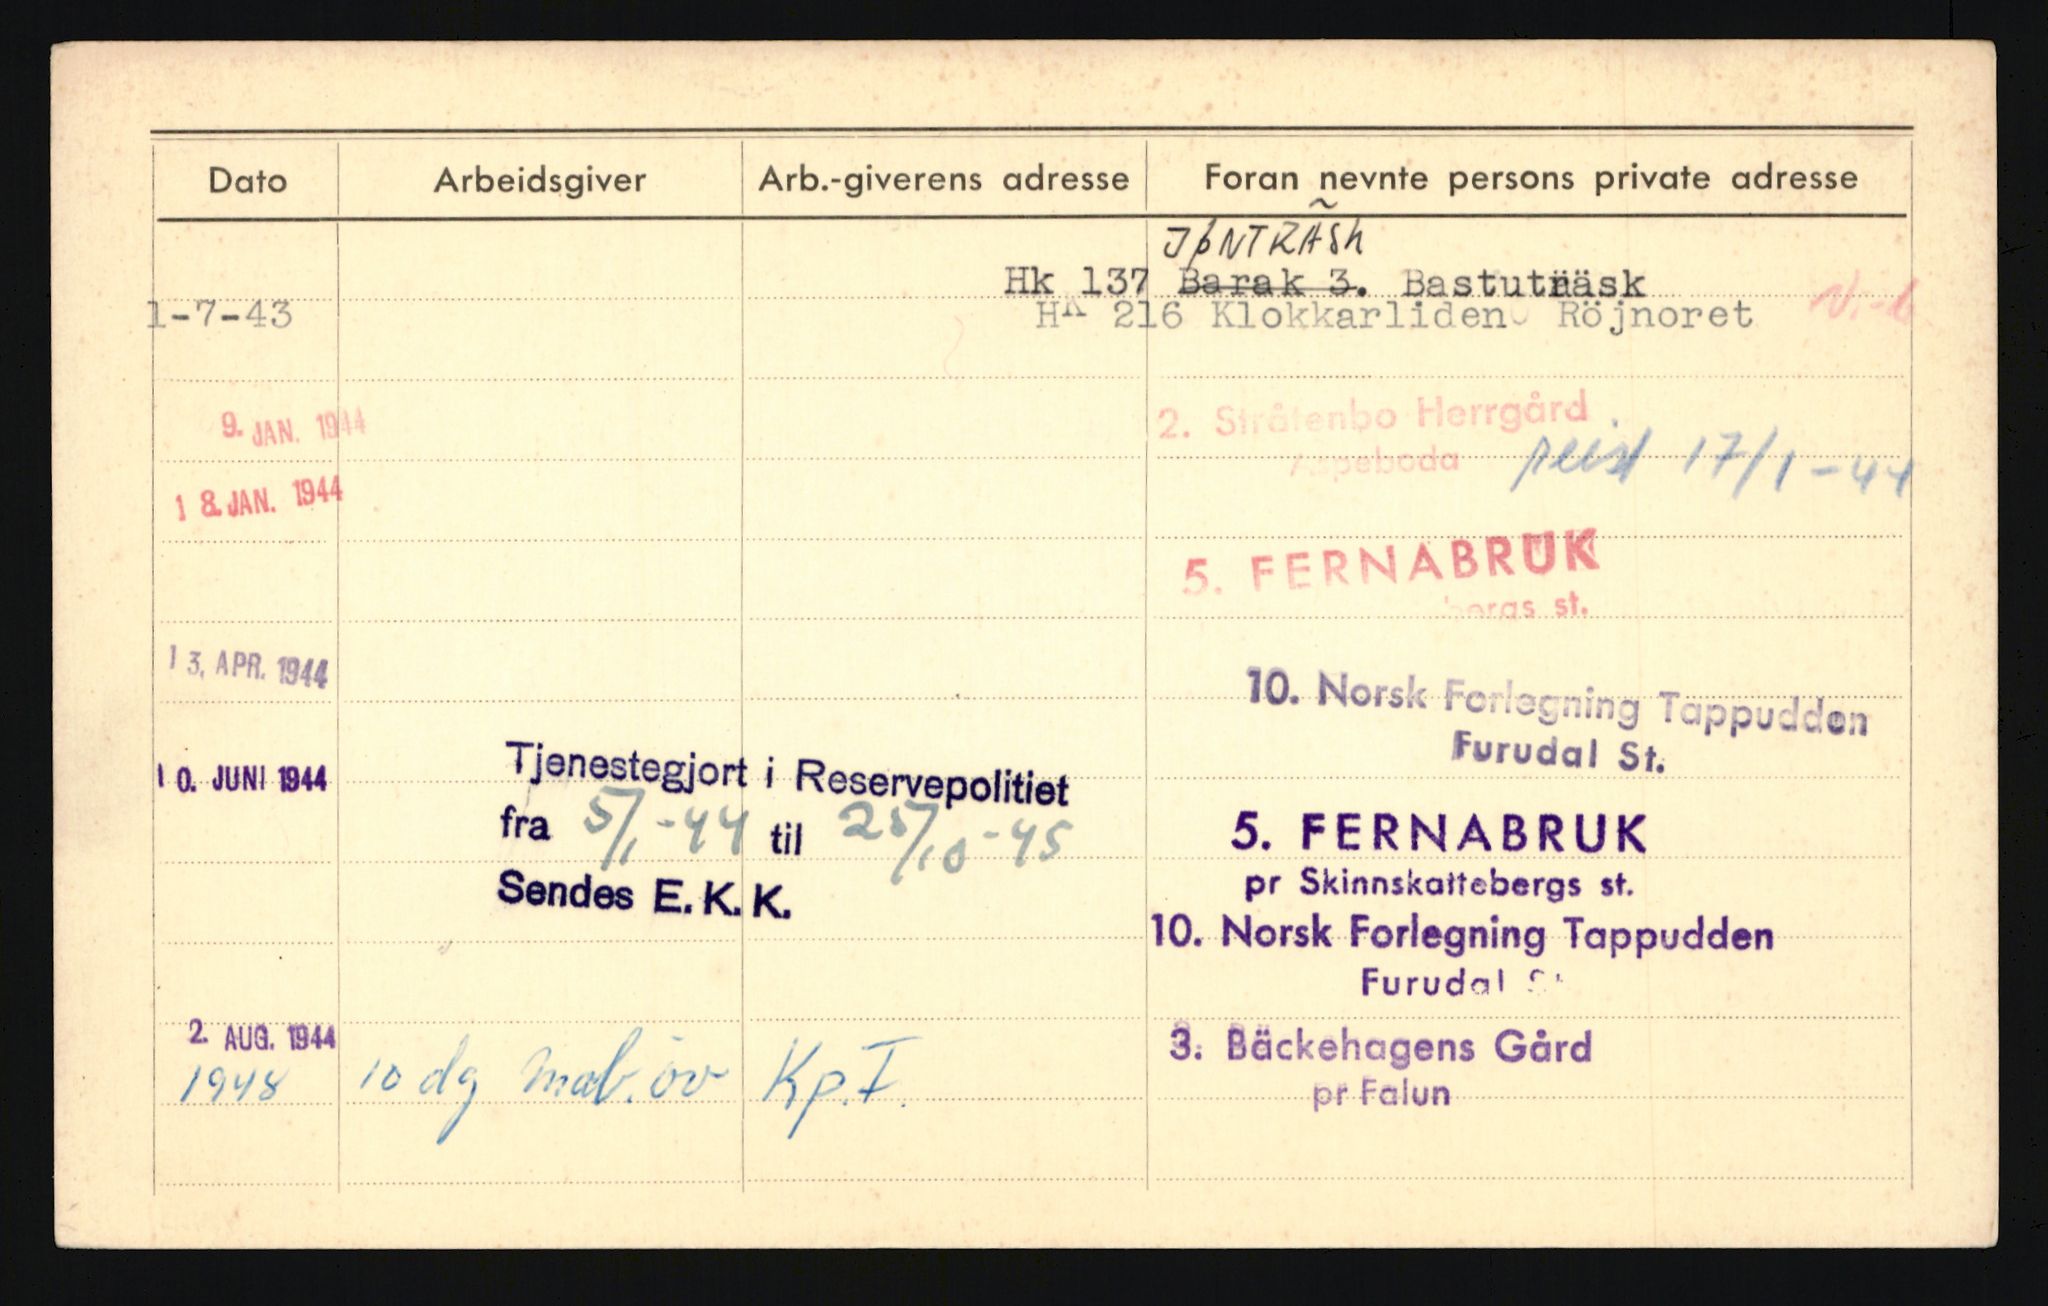 Dato Arbeidsgiver Arb.-giverens adresse Foran nevnte persons private adresse
JØNTRÄSK
Hk 137 Barak 3. Bastuträsk
1-7-43 Hk 216 Klokkarliden Röjnoret
9. JAN. 1944 2. Stråtenbo Herrgård
Aspeboda reist 17/1-44
18. JAN. 1944
5. FERNABRUK
bergs st.
13. APR. 1944 10. Norsk Forlegning Tappudden
Furudal St.
10. JUNI 1944 Tjenestegjort i Reservepolitiet
fra 5/1-44 til 25/10-45
5. FERNABRUK
Sendes E.K.K. pr Skinnskattebergs st.
10. Norsk Forlegning Tappudden
Furudal St
2. AUG. 1944 3. Bäckehagens Gård
1948 10 dg mob. öv Kp. I. pr Falun